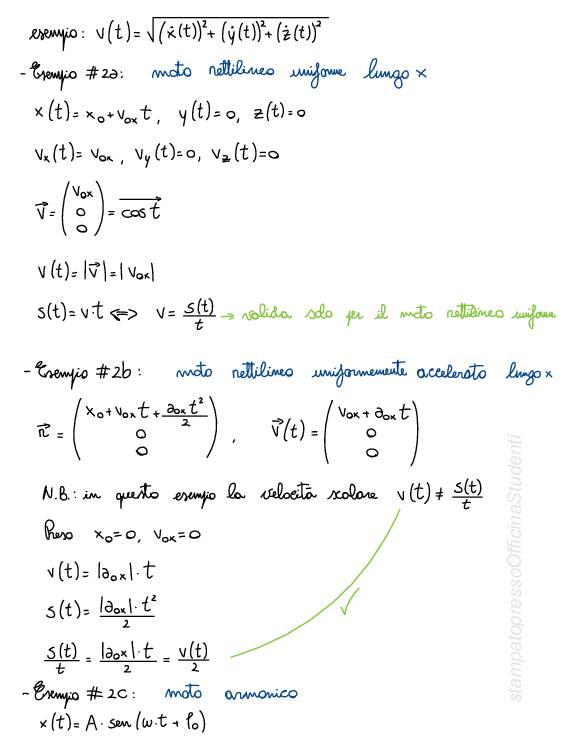 esempio: v(t) = √((ẋ(t))² + (ẏ(t))² + (ż(t))²)
- Esempio #2a: moto rettilineo uniforme lungo x
x(t) = x₀ + v₀ₓ t, y(t) = 0, z(t) = 0
vₓ(t) = v₀ₓ, v_y(t) = 0, v_z(t) = 0
v⃗ = (v₀ₓ 0 0) = cost
v(t) = |v⃗| = |v₀ₓ|
s(t) = v·t <=> v = s(t)/t → valida solo per il moto rettilineo uniforme
- Esempio #2b: moto rettilineo uniformemente accelerato lungo x
r⃗ = (x₀ + v₀ₓ t + a₀ₓ t²/2 0 0), v⃗(t) = (v₀ₓ + a₀ₓ t 0 0)
N.B.: in questo esempio la velocità scalare v(t) ≠ s(t)/t
Preso x₀ = 0, v₀ₓ = 0
v(t) = |a₀ₓ|·t
s(t) = |a₀ₓ|·t²/2
s(t)/t = |a₀ₓ|·t/2 = v(t)/2
- Esempio #2c: moto armonico
x(t) = A · sen(ω·t + φ₀)
stampatopressoOfficinaStudenti